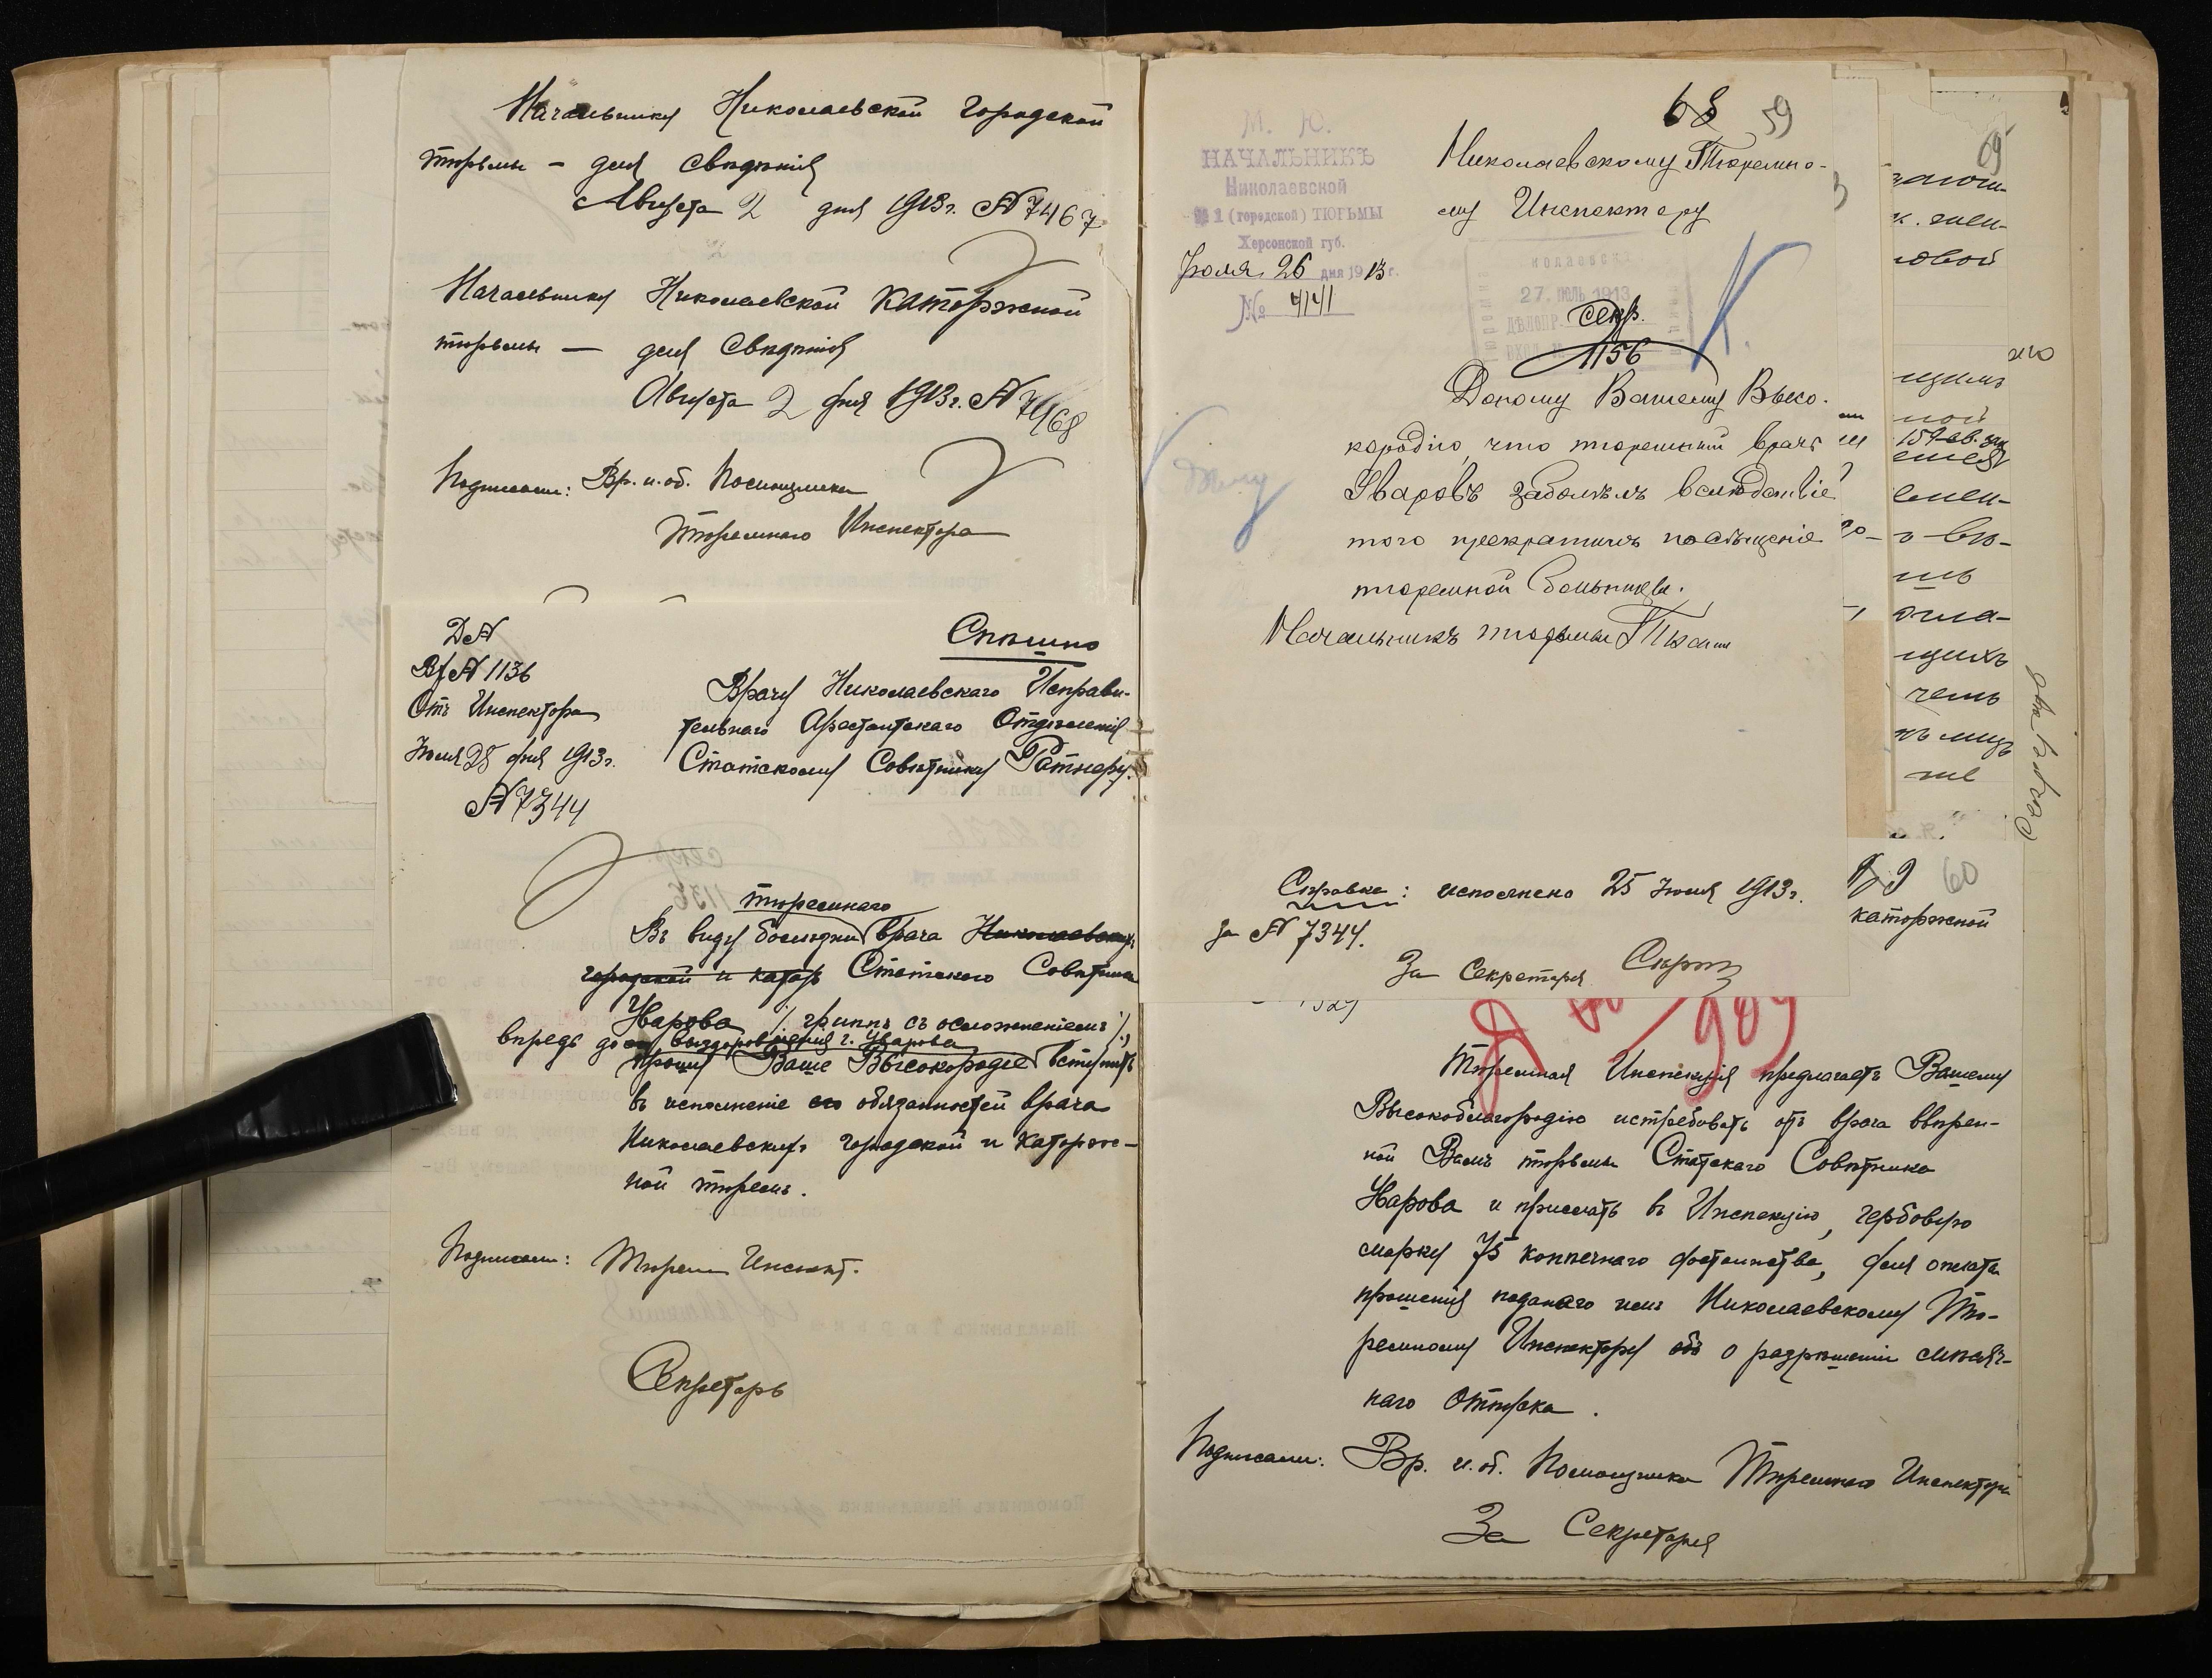 Начальнику Николаевской Городской
тюрьмы – для свѣдѣнія
Августа 2 дня 1913 г. № 7467
Начальнику Николаевской Каторжной
тюрьмы — для свѣдѣнія
Августа 2 дня 1913 г. № 7468
Подписали: Вр. и. об. Помощника
Тюремнаго Инспектора
Спѣшно
Д №
Вх № 1136
Отъ Инспектора
Іюля 25 дня 1913 г.
№ 7344
Врачу Николаевскаго Исправи-
тельнаго Арестантскаго Отдѣленія
Статскому Совѣтнику Ратнеру.
тюремнаго
Въ виду болѣзни врача Николаевских
городской и катор Статскаго Совѣтника
Уварова /: гриппъ съ осложненіемъ :/,
впредь до выздоровленія г. Уварова
прошу Ваше Высокородіе вступить
въ исполненіе его обязанностей врача
Николаевскихъ городской и каторж-
ной тюремъ.
Подписали: Тюрем Инспект.
Секретарь
68 59
М. Ю.
НАЧАЛЬНИКЪ
Николаевской
№ 1 (городской) ТЮРЬМЫ
Херсонской губ.
Іюля 26 дня 1913 г.
№ 4141
Николаевскому Тюремно-
му Инспектору
27. ІЮЛЬ 1913
секр.
1156
К
Доношу Вашему Высо-
кородію, что тюремный врачъ
Уваровъ заболѣлъ вслѣдствіе
того прекратилъ посѣщеніе
тюремной больницы.
Начальникъ тюрьмы
Справка: исполнено 25 Іюля 1913 г.
за № 7344.
За Секретаря
60
каторжной
Тюремная Инспекція предлагаетъ Вашему
Высокоблагородію истребовать отъ врача ввѣрен-
ной Вамъ тюрьмы Статскаго Совѣтника
Уварова и прислать въ Инспекцію, гербовую
марку 75 копѣечнаго достоинства, для оплаты
прошенія поданаго имъ Николаевскому Тю-
ремному Инспектору объ о разрѣшеніи мѣсяч-
наго отпуска.
Подписали: Вр. и. об. Помощника Тюремнаго Инспектора
За Секретаря